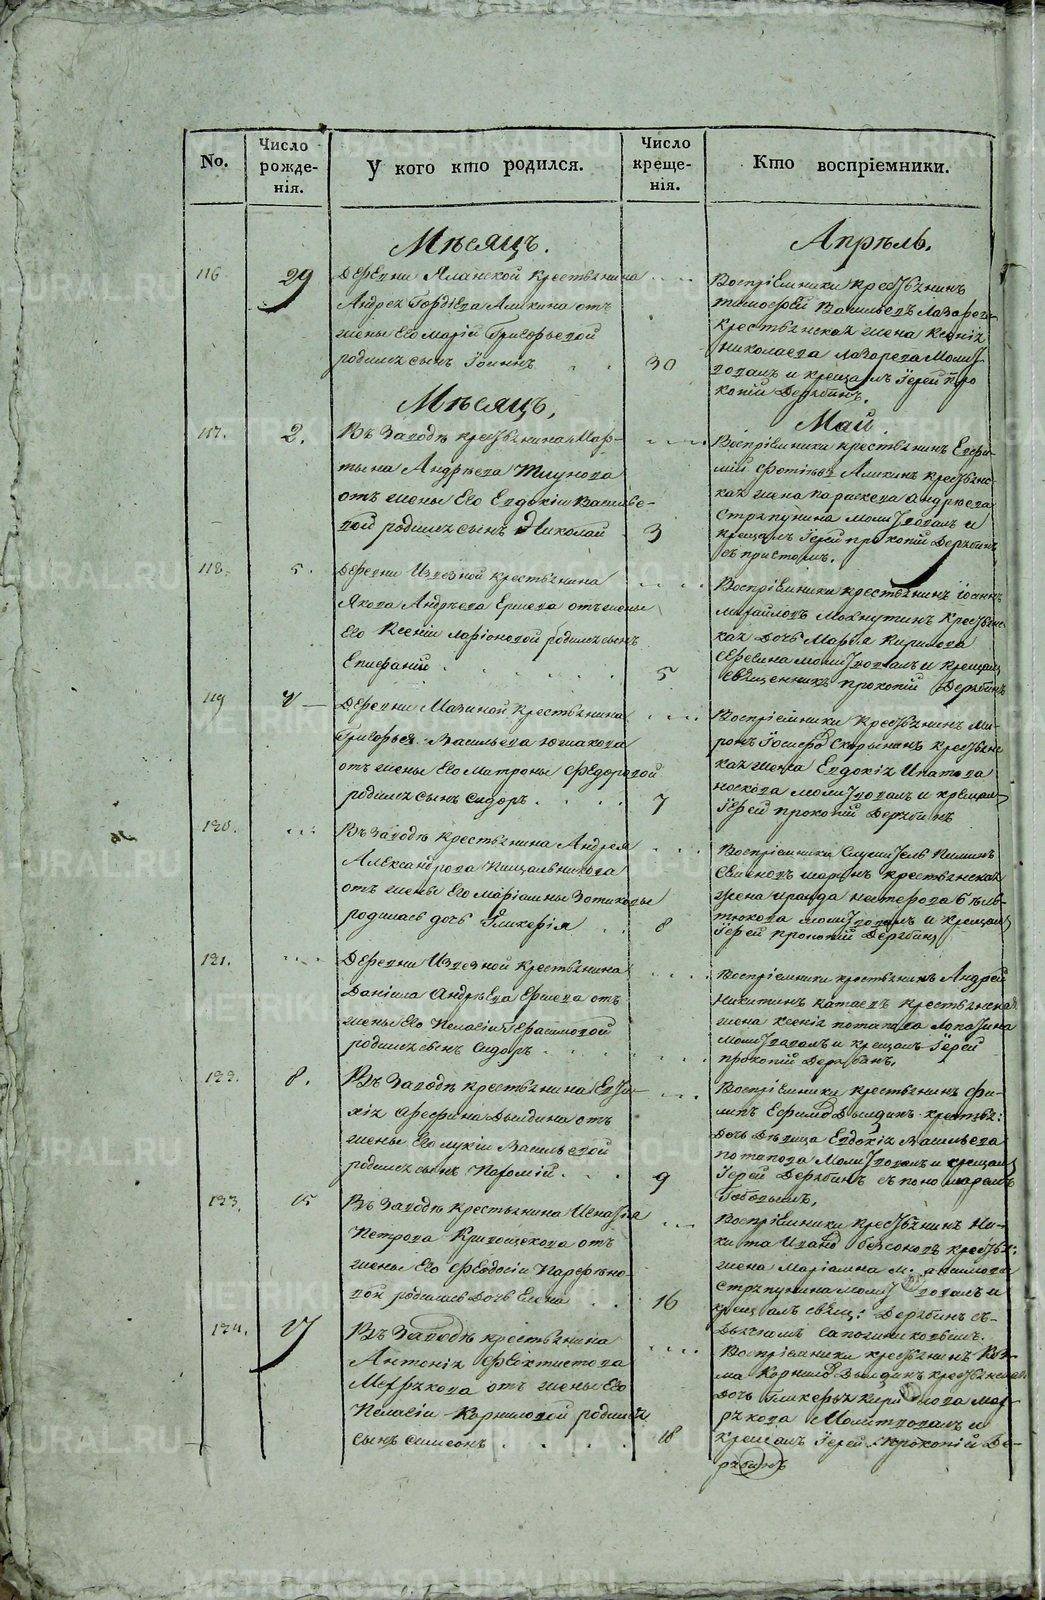 No.
Число рожде-нія.
У кого кто родился.
Число креще-нія.
Кто воспріемники.
Мѣсяцъ.
Апрѣль.
116.
29
Деревни Яланской крестьянина
Андрея Гордѣева Аликина отъ
жены его Маріи Григорьевой
родился сынъ Іоаннъ
30
Воспріемники крестьянинъ
Тимофей Васильевъ Лазарева
крестьянская жена Ксенія
Николаева Лазарева Молит
вовалъ и крещалъ Іерей Про
копій Дерябинъ.
Мѣсяцъ.
Май
117.
2.
Въ Заводѣ крестьянина Мар-
тына Андрѣева
отъ жены его Евдокіи Василье-
вой родился сынъ Николай
3
Воспріемники крестьянинъ Ефи-
мій Фотіевъ Аликинъ крестьянс-
кая жена Параскева Андрѣева
Стряпунина молитвовалъ и
крещалъ Іерей Прокопій Дерябинъ
съ причтомъ.
118.
5.
Деревни Изъезной крестьянина
Якова Андрѣева Ершева отъ жены
его Ксеніи Ларіоновой родился сынъ
Епифаній
5
Воспріемники крестьянинъ Іоаннъ
Михайловъ Махнутинъ крестьянс-
кая дочь Марья Кирилова
молитвовалъ и крещалъ
священникъ Прокопій Дерябинъ
119
Деревни Мазиной крестьянина
Григорья Васильева Южакова
отъ жены его Матроны Федоровой
родился сынъ Сидоръ
7
Воспріемники крестьянинъ Ми-
ронъ Іосифовъ Скорынинъ крестьянс-
кая жена Евдокія Ипатова
Носкова молитвовалъ и крещалъ
Іерей Прокопій Дерябинъ
120.
Въ Заводѣ крестьянина Андрея
Александрова Пищальникова
отъ жены его Маріамны Зотиковы
родилась дочь Гликерія
8
Воспріемники Служитель Пиминъ
Семеновъ крестьянская
жена Ираида Нестерова
молитвовалъ и крещалъ
Іерей Прокопій Дерябинъ
121.
Деревни Изъезной крестьянина
Даніила Андрѣева Ершева отъ
жены его Пелагіи Герасимовой
родился сынъ Сидоръ
Воспріемники крестьянинъ Андрей
Никитинъ Катаевъ крестьянская
жена Ксенія Потапова Лопатина
молитвовалъ и крещалъ Іерей
Прокопій Дерябинъ.
122.
8.
Въ Заводѣ крестьянина Евти-
хія Арефина Дылдина отъ
жены его Лукіи Васильевой
родился сынъ Пахомій
9
Воспріемники крестьянинъ Фи-
липъ Ефимовъ Дылдинъ крестьян:
дочь Дѣвица Евдокія Васильева
Потапова Молитвовалъ и крещалъ
Іерей Дерябинъ съ пономаремъ
123.
15
Въ Заводѣ крестьянина Игнатія
Петрова Кривощекова отъ
жены его Феодосіи Парфено-
вой родилась Дочь Елена
16
Воспріемники крестьянинъ Ни-
кита Ивановъ Безсоновъ крестьян:
жена Маріамна Максимова
Стряпунина молитвовалъ и
крещалъ свящ: Дерябинъ съ
Дьячкомъ Сапожниковымъ.
124.
17
Въ Заводѣ крестьянина
Антонія Феоктистова
Мерзякова отъ жены его
Пелагіи Корниловой родился
сынъ Симеонъ
18
Воспріемники крестьянинъ Коз-
ма Корниловъ Дылдинъ крестьянская
дочь Гликерья Кирилова Мер-
зякова Молитвовалъ и
крещалъ Іерей Прокопій Де-
рябинъ